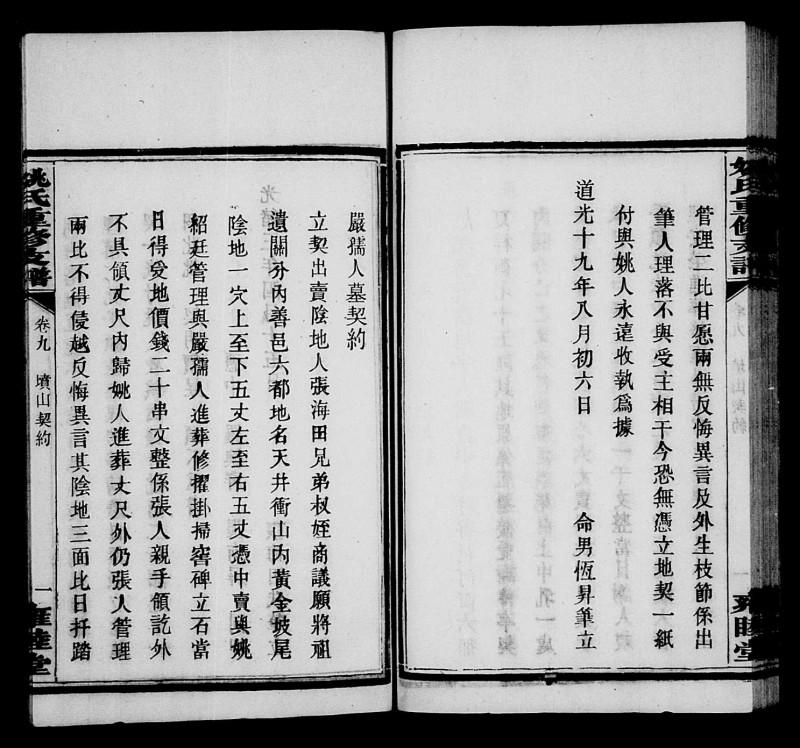 管理二比甘愿兩無反悔異言及外生枝節係出
筆人理落不與受主相干今恐無憑立地契一紙
付與姚人永遠收執為據
道光十九年八月初六日　命男恆昇筆立
嚴孺人墓契約
立契出賣陰地人張海田兄弟叔姪商議願將祖
遺關分內善邑六都地名天井衝山內黃金坡尾
陰地一穴上至下五丈左至右五丈憑中賣與姚
紹廷管理與嚴孺人進葬修擢掛掃窖碑立石當
日得受地價錢二十串文整係張人親手領訖外
不具領丈尺內歸姚人進葬丈尺外仍張人管理
兩比不得侵越反悔異言其陰地三面比日扦踏
姚氏重修支譜
卷九　墳山契約
一
雍睦堂